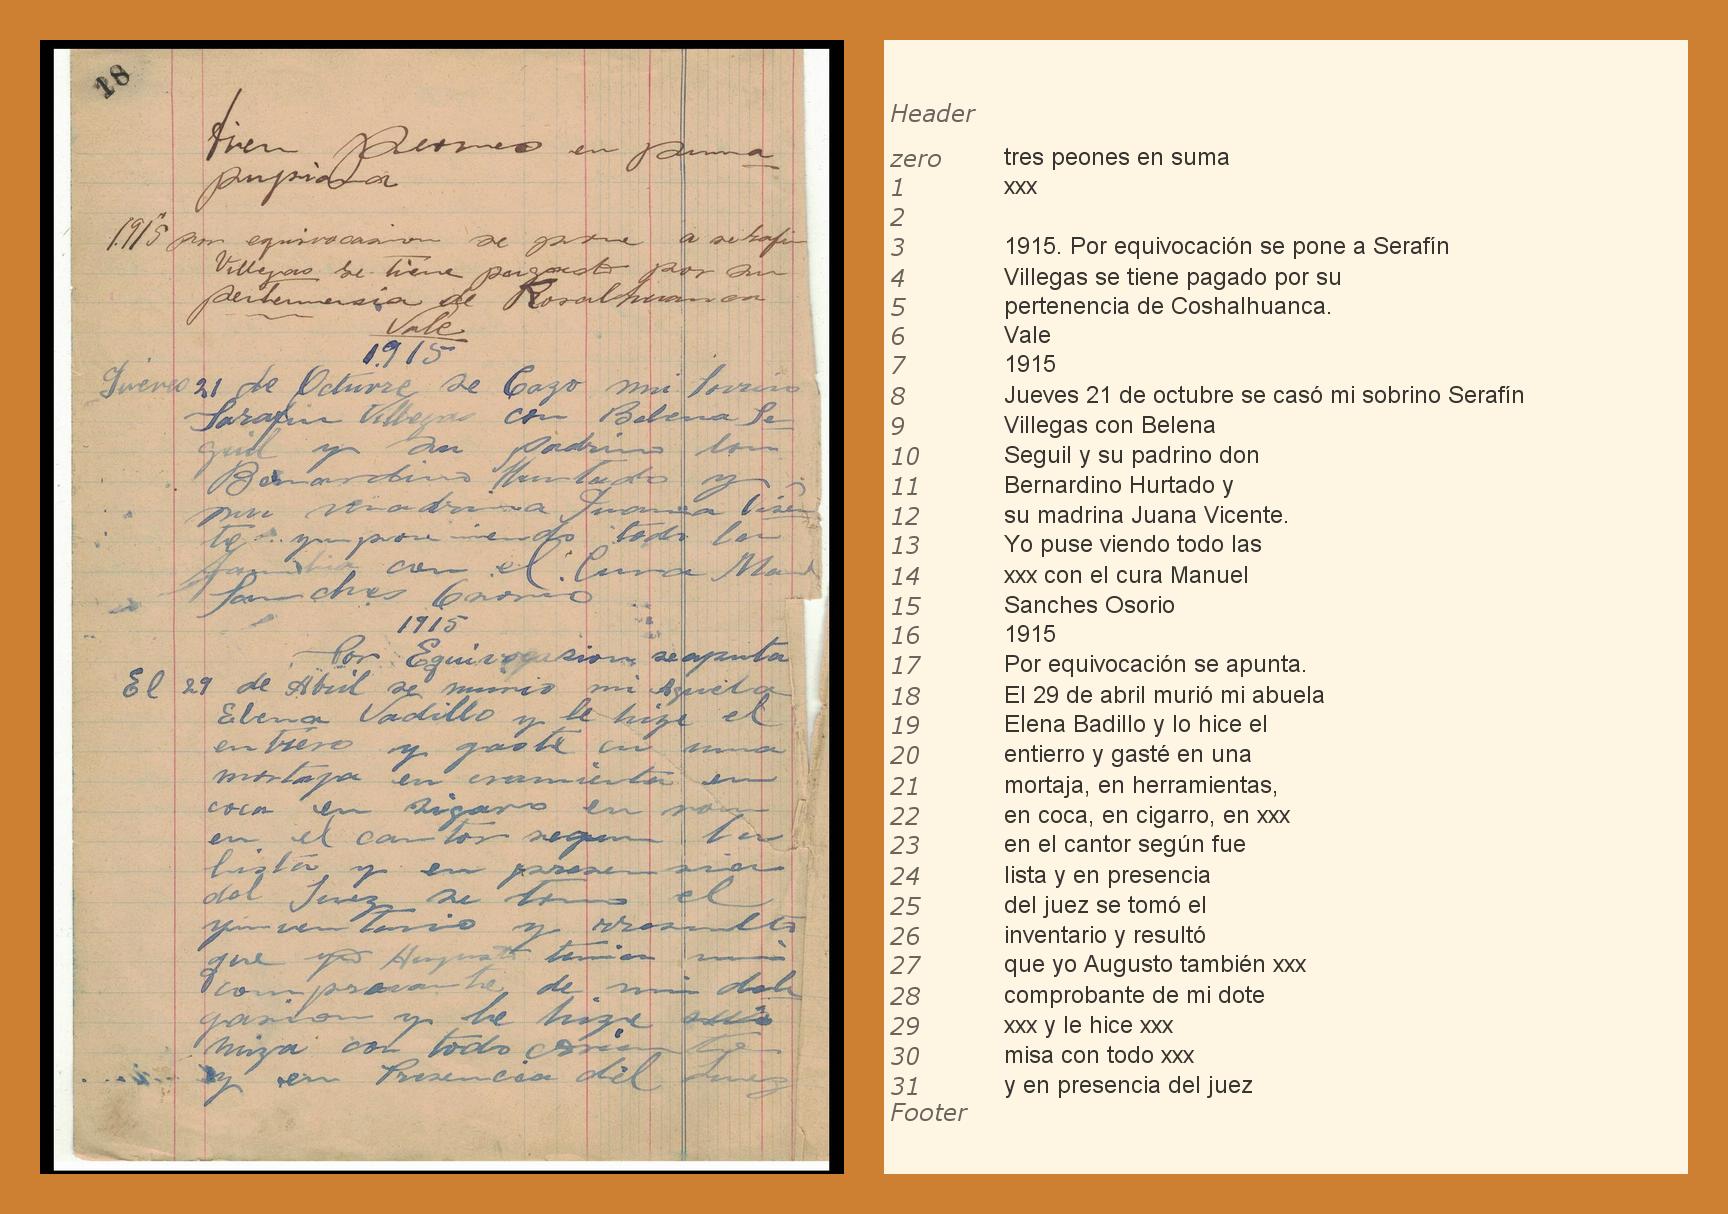 18
peones en puma
1915 por equivocasion se pone a serafin
Villegas se tiene pagado por su
pertenensia de
Vale
1915
Jueves 21 de Octuvre se Cazo mi sovrino
Sarafin Villegas con Belena Se-
guil y su padrino don
Bernardino Hurtado y
su madrina Juana Visen-
te todo la
familia con el Cura Man
Sanches Osorio
1915
Por Equivocasion se apunta
El 29 de Abril se murio mi Aguela
Elena Vadillo y le hize el
entiero y gasté en una
mortaja en eramienta en
coca en sigaro en ron
en el cantor segun la
lista y en presensia
del Juez se tomo el
yinventario y rresulto
que yo Augusto
comprovante de mi
y le hize
miza con todo
y en Presencia del Juez
Header
zero tres peones en suma
1 xxx
2
3 1915. Por equivocación se pone a Serafín
4 Villegas se tiene pagado por su
5 pertenencia de Coshalhuanca.
6 Vale
7 1915
8 Jueves 21 de octubre se casó mi sobrino Serafín
9 Villegas con Belena
10 Seguil y su padrino don
11 Bernardino Hurtado y
12 su madrina Juana Vicente.
13 Yo puse viendo todo las
14 xxx con el cura Manuel
15 Sanches Osorio
16 1915
17 Por equivocación se apunta.
18 El 29 de abril murió mi abuela
19 Elena Badillo y lo hice el
20 entierro y gasté en una
21 mortaja, en herramientas,
22 en coca, en cigarro, en xxx
23 en el cantor según fue
24 lista y en presencia
25 del juez se tomó el
26 inventario y resultó
27 que yo Augusto también xxx
28 comprobante de mi dote
29 xxx y le hice xxx
30 misa con todo xxx
31 y en presencia del juez
Footer